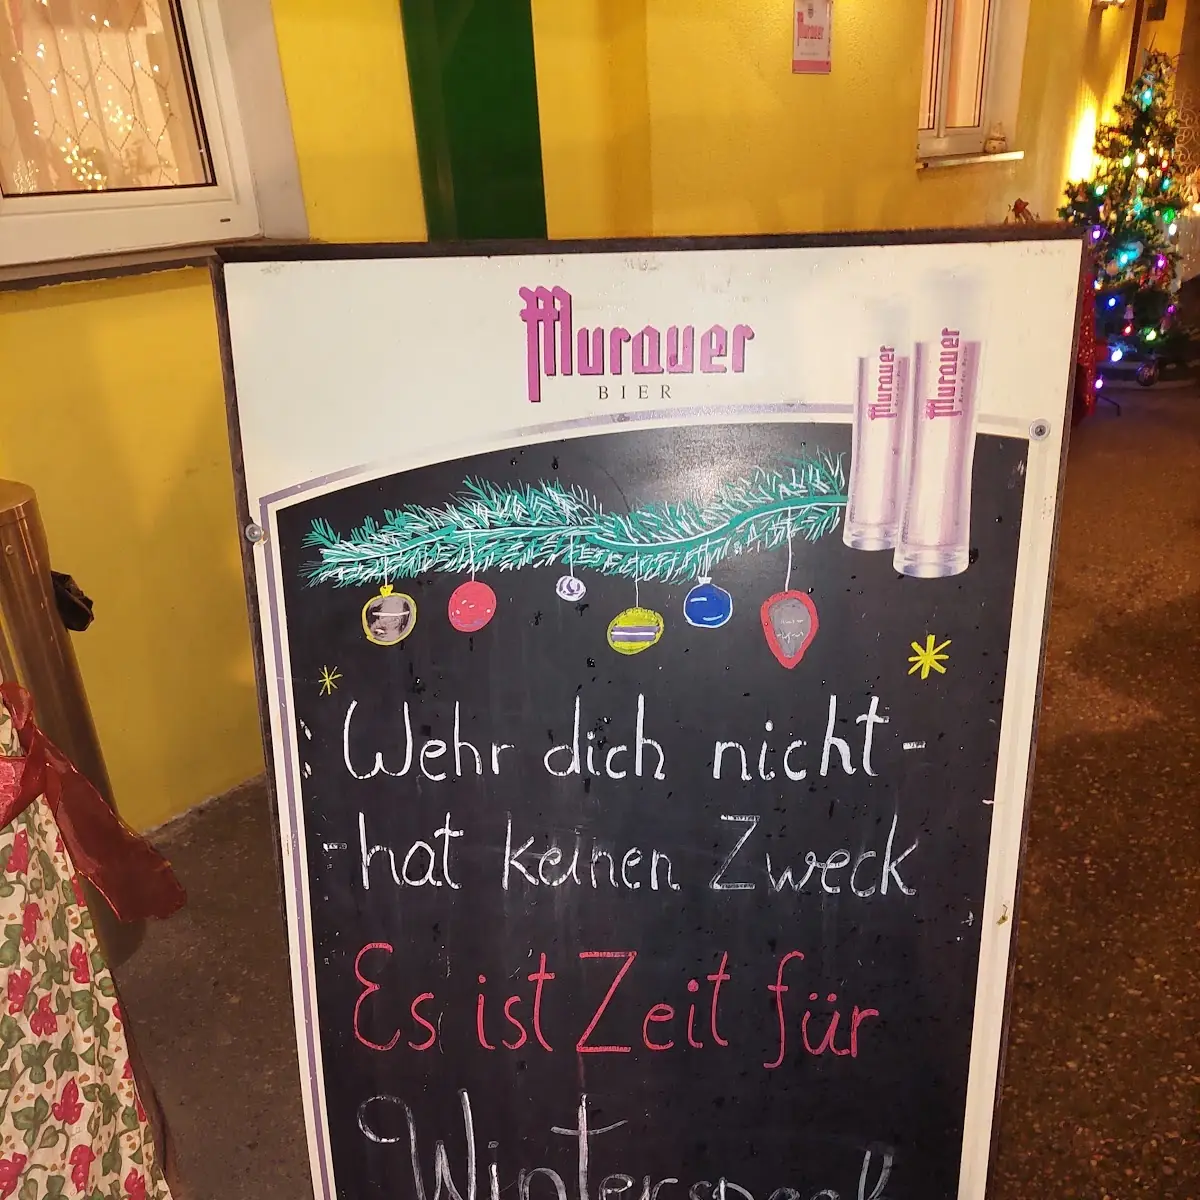 Murauer
Murauer
BIER
Murauer
Murauer
Wehr dich nicht -
- hat keinen Zweck
Es ist Zeit für
Winterspeck